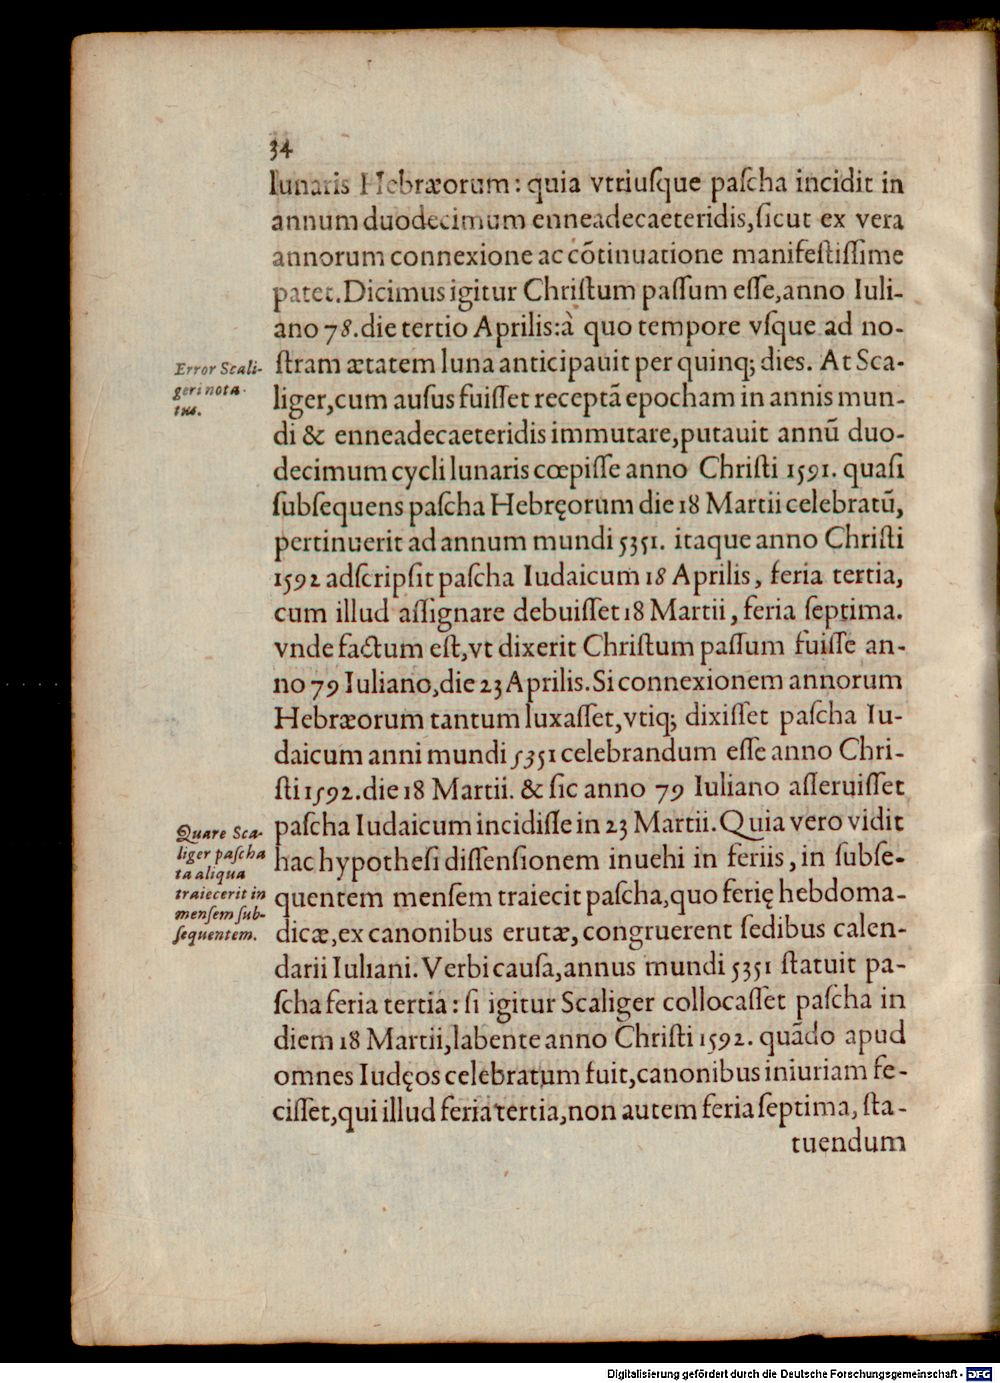 34
lunaris Hebræorum: quia vtriuſque paſcha incidit in
annum duodecimum enneadecaeteridis, ſicut ex vera
annorum connexione ac cõtinuatione manifeſtiſſime
patet. Dicimus igitur Chriſtum paſſum eſſe, anno Iuli-
ano 78. die tertio Aprilis: à quo tempore vſque ad no-
ſtram ætatem luna anticipauit per quinq; dies. At Sca-
liger, cum auſus fuiſſet receptã epocham in annis mun-
di & enneadecaeteridis immutare, putauit annũ duo-
decimum cycli lunaris cœpiſſe anno Chriſti 1591. quaſi
ſubſequens paſcha Hebręorum die 18 Martii celebratũ,
pertinuerit ad annum mundi 5351. itaque anno Chriſti
1592 adſcripſit paſcha Iudaicum 18 Aprilis, feria tertia,
cum illud aſſignare debuiſſet 18 Martii, feria ſeptima.
vnde factum eſt, vt dixerit Chriſtum paſſum fuiſſe an-
no 79 Iuliano, die 23 Aprilis. Si connexionem annorum
Hebræorum tantum luxaſſet, vtiq; dixiſſet paſcha Iu-
daicum anni mundi 5351 celebrandum eſſe anno Chri-
ſti 1592. die 18 Martii. & ſic anno 79 Iuliano aſſeruiſſet
paſcha Iudaicum incidiſſe in 23 Martii. Quia vero vidit
hac hypotheſi diſſenſionem inuehi in feriis, in ſubſe-
quentem menſem traiecit paſcha, quo ferię hebdoma-
dicæ, ex canonibus erutæ, congruerent ſedibus calen-
darii Iuliani. Verbi cauſa, annus mundi 5351 ſtatuit pa-
ſcha feria tertia: ſi igitur Scaliger collocaſſet paſcha in
diem 18 Martii, labente anno Chriſti 1592. quãdo apud
omnes Iudęos celebratum fuit, canonibus iniuriam fe-
ciſſet, qui illud feria tertia, non autem feria ſeptima, ſta-
tuendum
Error Scali-
geri nota-
tus.
Quare Sca-
liger paſcha
ta aliqua
traiecerit in
menſem ſub-
ſequentem.
Digitalisierung gefördert durch die Deutsche Forschungsgemeinschaft - DFG